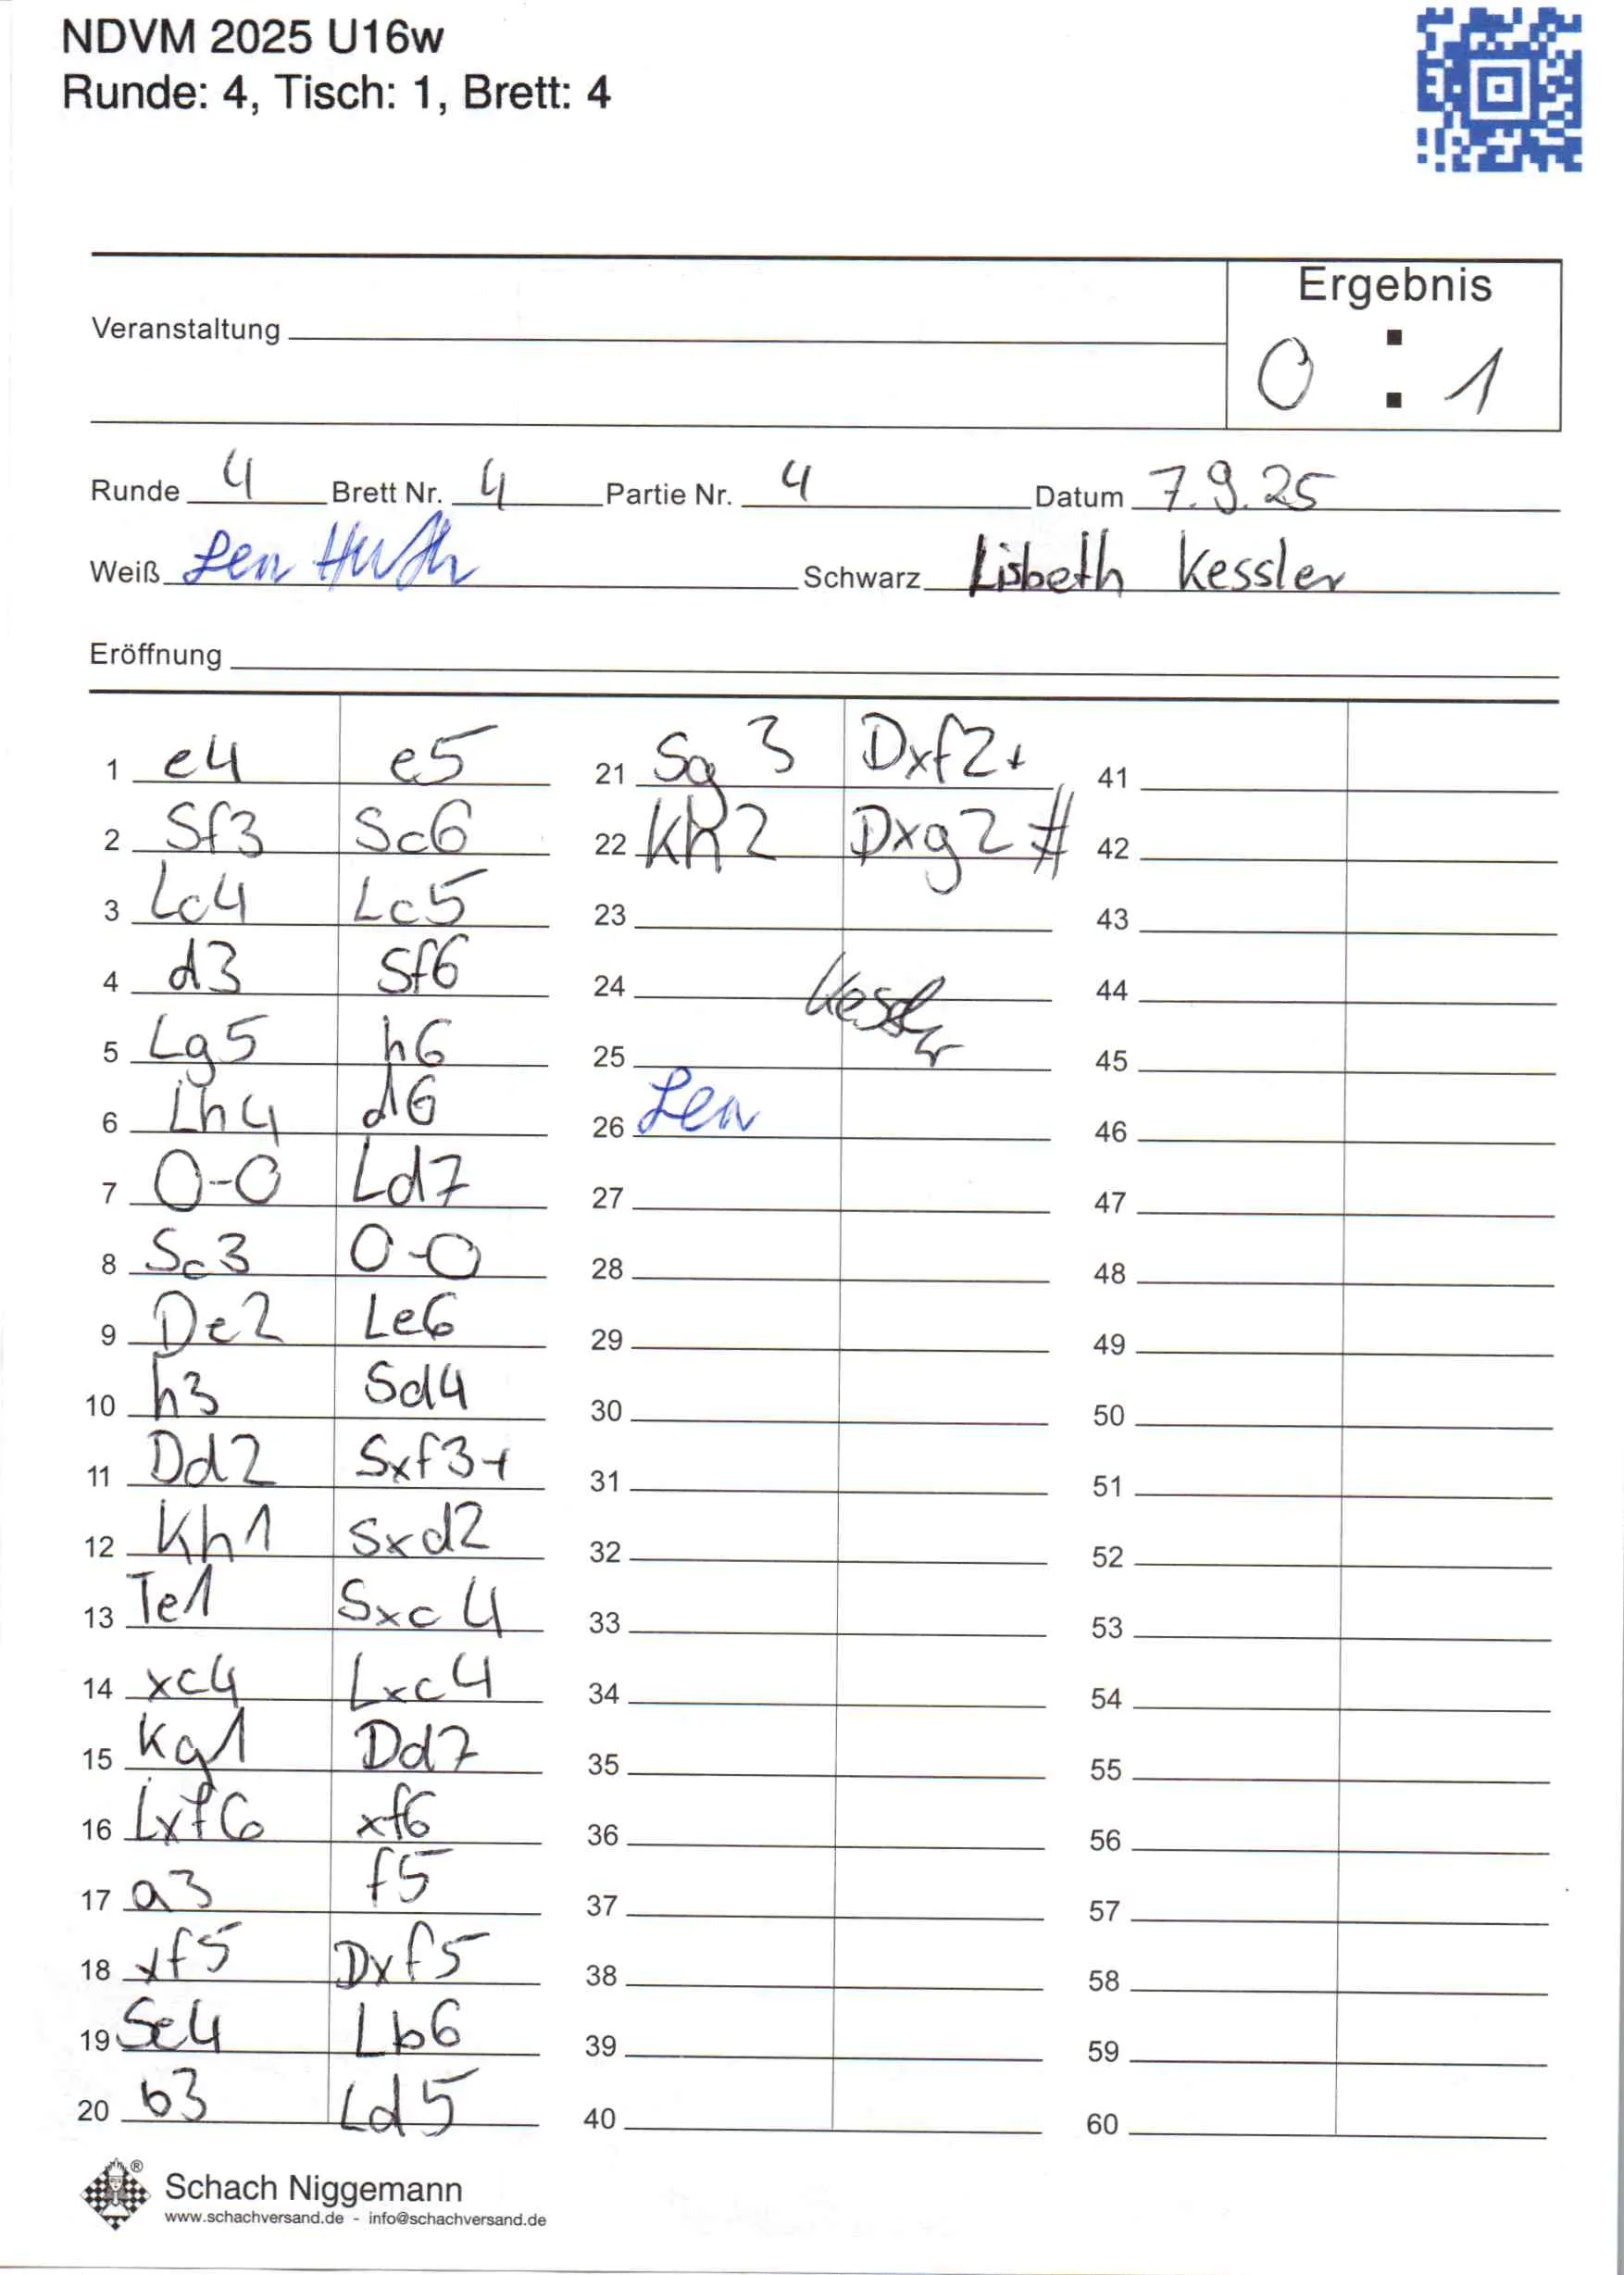 NDVM 2025 U16w
Runde: 4, Tisch: 1, Brett: 4
Ergebnis
Veranstaltung
0 : 1
Runde 4 Brett Nr. 4 Partie Nr. 4 Datum 7.9.25
Weiß Len Huth Schwarz Lisbeth Kessler
Eröffnung
1 e4 e5
2 Sf3 Sc6
3 Lc4 Lc5
4 d3 Sf6
5 Lg5 h6
6 Lh4 d6
7 0-0 Ld7
8 Sc3 0-0
9 De2 Le6
10 h3 Sd4
11 Dd2 Sxf3+
12 Kh1 Sxd2
13 Te1 Sxc4
14 xc4 Lxc4
15 Kg1 Dd7
16 Lxf6 xf6
17 a3 f5
18 xf5 Dxf5
19 Se4 Lb6
20 b3 Ld5
21 Sg3 Dxf2+
22 Kh2 Dxg2#
23
24 Kessler
25
26 Len
27
28
29
30
31
32
33
34
35
36
37
38
39
40
41
42
43
44
45
46
47
48
49
50
51
52
53
54
55
56
57
58
59
60
®
Schach Niggemann
www.schachversand.de - info@schachversand.de